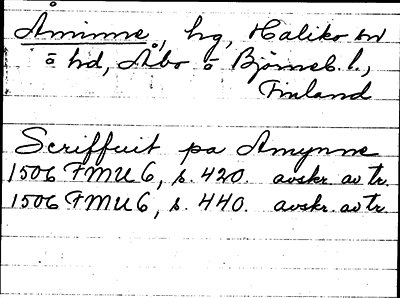 Åminne, hg, Halikko sn
o hd, Åbo o Björneb. l.,
Finland
Scriffuit pa Amynne
1506 FMU 6, s. 420. avskr. av tr.
1506 FMU 6, s. 440. avskr. av tr.